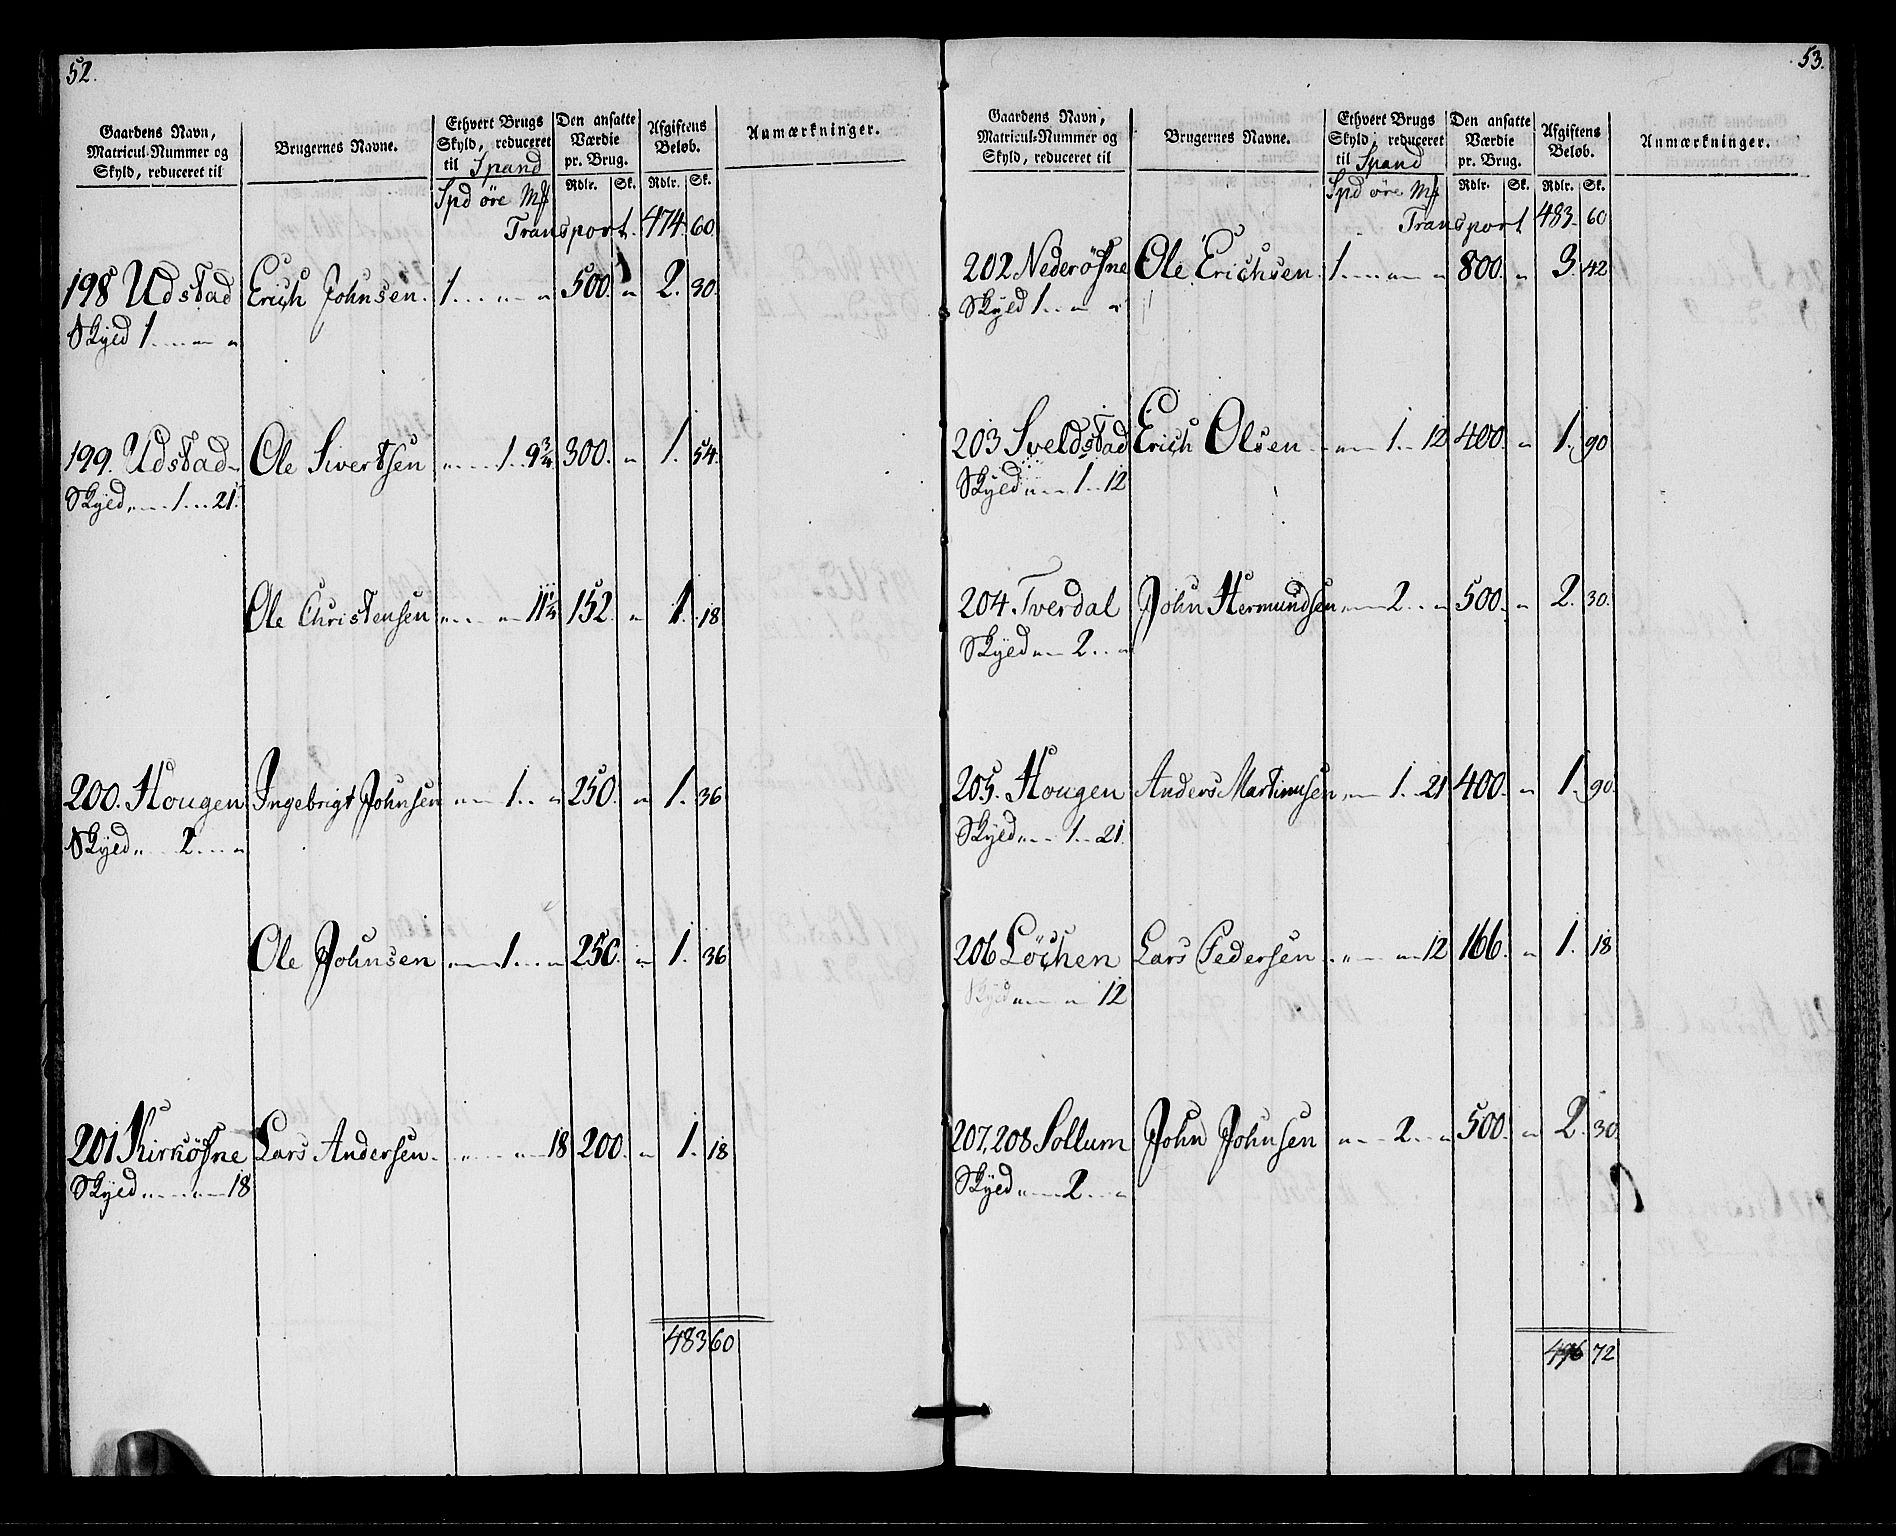 52.
Gaardens Navn, Matricul-Nummer og Skyld, reduceret til
Brugernes Navne.
Ethvert Brugs Skyld, reduceret til Spand
Den ansatte Værdie pr. Brug.
Afgiftens Beløb.
Anmærkninger.
Spd øre Mk
Rdlr. Sk. Rdlr. Sk.
Transport. 474. 60
198 Udstad Erich Johnsen. 1 . . . „ „ 500. „ 2. 30.
Skyld 1 . . . „ „
199. Udstad Ole Sivertsen „ . . . 1 . . 9 3/4 300. „ 1. 54.
Skyld „ . . . 1 . . . 21.
Ole Christensen „ . . . „ 11 1/4 152. „ 1. 18
200. Hougen Ingebrigt Johnsen „ . . 1 . . „ 250. „ 1. 36
Skyld „ . . 2 . . . „
Ole Johnsen „ . . 1 . . . „ 250. „ 1. 36
201 Kirkösne Lars Andersen. „ . . . „ 18 200. „ 1. 18
Skyld „ . . . „ 18
483 60
53.
Gaardens Navn, Matricul-Nummer og Skyld, reduceret til
Brugernes Navne.
Ethvert Brugs Skyld, reduceret til Spand
Den ansatte Værdie pr. Brug.
Afgiftens Beløb.
Anmærkninger.
Spd øre Mk
Rdlr. Sk. Rdlr. Sk.
Transport 483. 60
202 Nederösne Ole Erichsen 1 . . . „ „ 800. „ 3. 42
Skyld 1 . . „ „
203 Sveldstad Erich Olsen „ . . 1 . . 12 400. „ 1. 90
Skyld „ . . 1 . . 12
204 Tverdal John Hermundsen „ . . 2 . . „ 500. „ 2. 30.
Skyld „ . . 2 . . „
205. Hougen Anders Martinusen „ . . 1 . . 21 400. „ 1. 90.
Skyld „ . . 1 . . 21.
206 Löchen Lars Pedersen „ . . „ 12 166. „ 1. 18
Skyld „ . . „ 12
207, 208 Sollum John Johnsen „ . . 2 . . „ 500. „ 2. 30.
Skyld „ . . 2 . . „
496 72